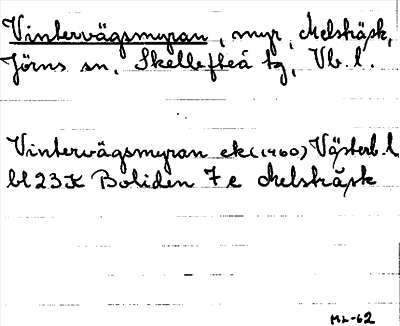 Vintervägsmyran, myr, Melsträsk,
Jörns sn, Skellefteå tg, Vb. l.
Vintervägsmyran ek (1960) Västerb. l
bl 23 K Boliden 7 e Melsträsk
ML-62